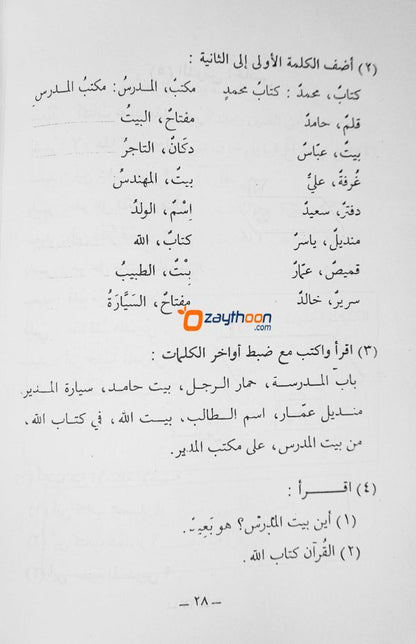 (٢) أضف الكلمة الأولى إلى الثانية :
كتابٌ، محمدٌ : كتابُ محمدٍ مكتبٌ، المدرسُ: مكتبُ المدرسِ
قلمٌ، حامدٌ مفتاحٌ، البيتُ
بيتٌ، عباسٌ دكانٌ، التاجرُ
غُرفةٌ، عليٌّ بيتٌ، المهندسُ
دفترٌ، سعيدٌ اِسْمٌ، الولدُ
منديلٌ، ياسرٌ كتابٌ، الله
قميصٌ، عمّارٌ بِنْتٌ، الطبيبُ
سريرٌ، خالدٌ مفتاحٌ، السَيَّارَةُ
zaythoon.com
(٣) اقرأ واكتب مع ضبط أواخر الكلمات :
باب المدرسة، حمار الرجل، بيت حامد، سيارة المدير.
منديل عمَّار، اسم الطالب، بيت الله، في كتاب الله،
من بيت المدرس، على مكتب المدير.
(٤) اقـــرأ :
(١) أين بيت المُدَرِّس؟ هو بَعِيدٌ.
(٢) القُرآن كتاب الله.
– ٢٨ –